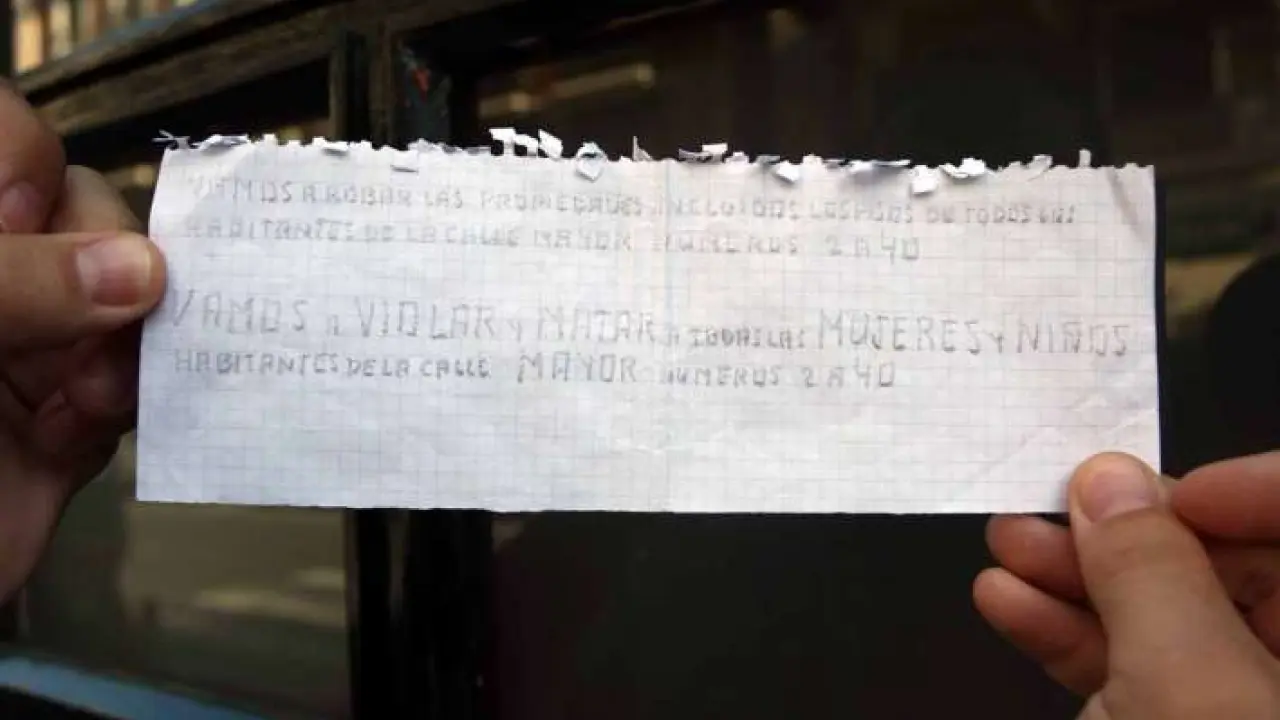 VAMOS A ROBAR LAS PROPIEDADES INCLUIDOS LOS PISOS DE TODOS LOS
HABITANTES DE LA CALLE MAYOR NUMEROS 2 A 40
VAMOS A VIOLAR Y MATAR A TODAS LAS MUJERES Y NIÑOS
HABITANTES DE LA CALLE MAYOR NUMEROS 2 A 40